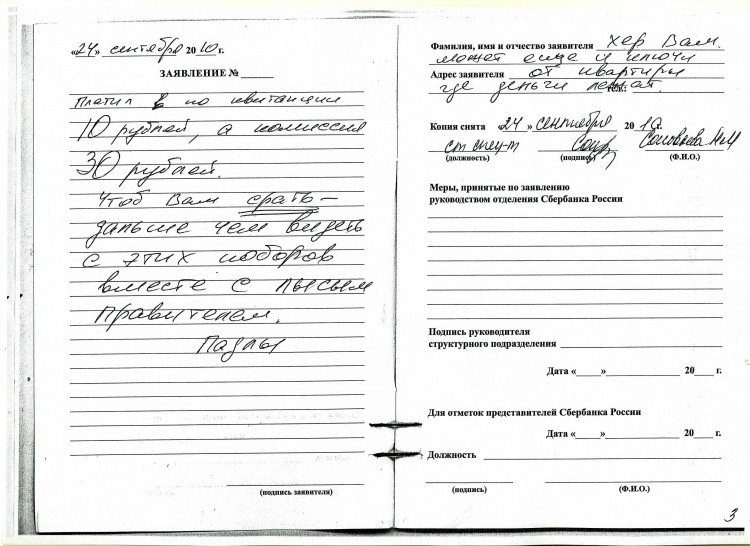 «24» сентября 2010 г.
ЗАЯВЛЕНИЕ №
Платил по квитанции
10 рублей, а комиссия
30 рублей.
Чтоб Вам срать
дальше чем видеть
с этих поборов
вместе с лысым
правителем.
Падлы
(подпись заявителя)
Фамилия, имя и отчество заявителя хер Вам.
может еще и ключи
Адрес заявителя от квартиры
где деньги лежат. тел.:
Копия снята «24» сентября 2010.
ст спец-т Соловьева НМ
(должность) (подпись) (Ф.И.О.)
Меры, принятые по заявлению
руководством отделения Сбербанка России
Подпись руководителя
структурного подразделения
Дата «____»____ 20___ г.
Для отметок представителей Сбербанка России
Дата «____»____ 20___ г.
Должность
(подпись) (Ф.И.О.)
3